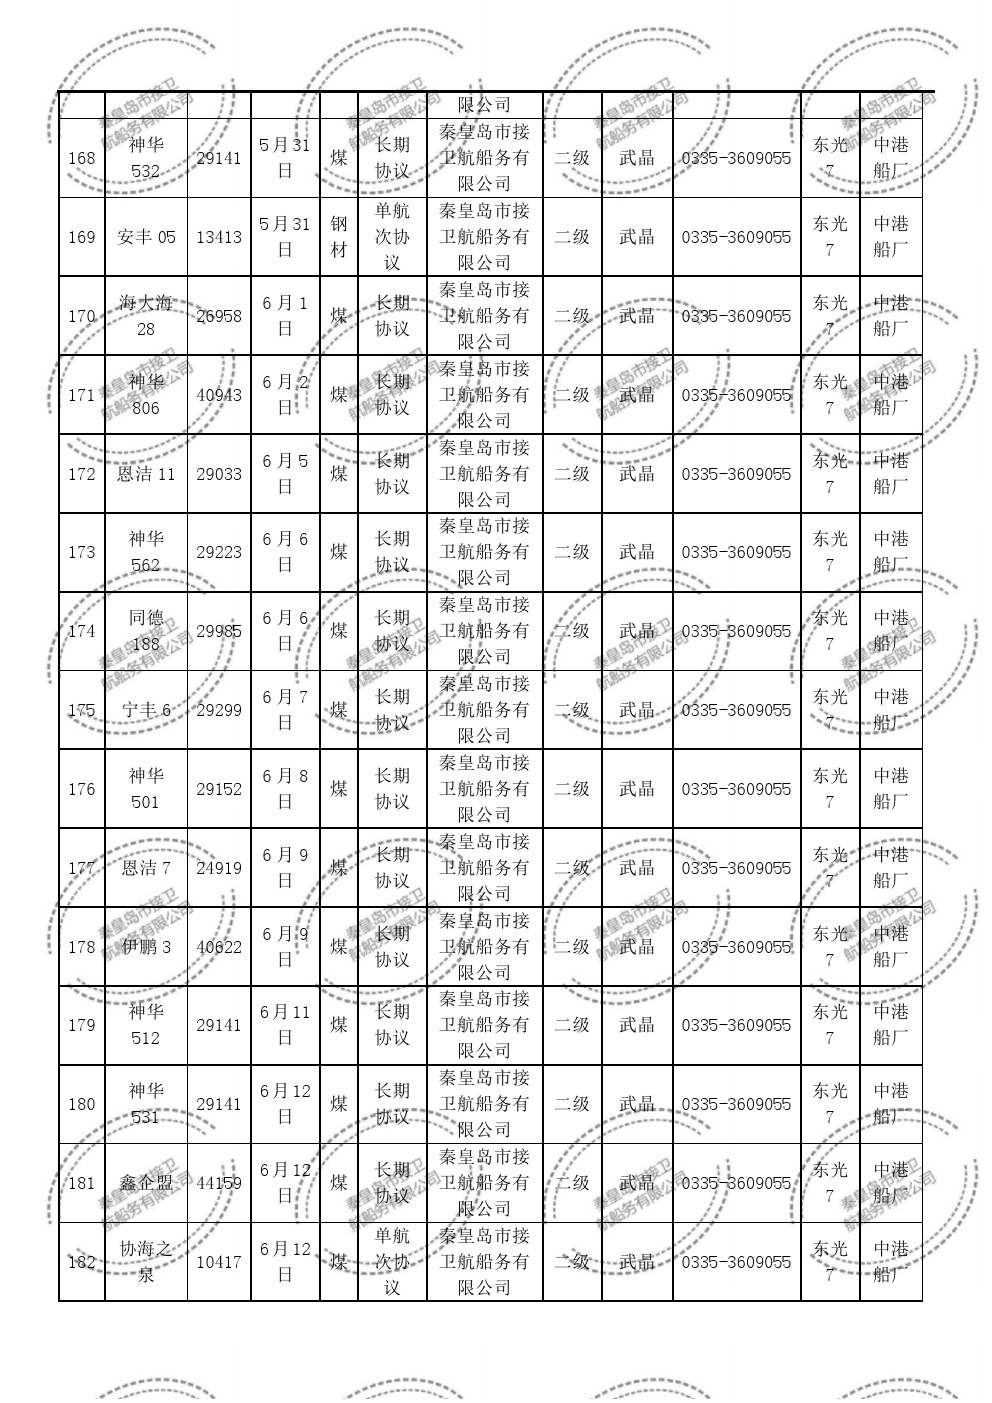 限公司
168 神华532 29141 5月31日 煤 长期协议 秦皇岛市接卫航船务有限公司 二级 武晶 0335-3609055 东光7 中港船厂
169 安丰05 13413 5月31日 钢材 单航次协议 秦皇岛市接卫航船务有限公司 二级 武晶 0335-3609055 东光7 中港船厂
170 海大海28 26958 6月1日 煤 长期协议 秦皇岛市接卫航船务有限公司 二级 武晶 0335-3609055 东光7 中港船厂
171 神华806 40943 6月2日 煤 长期协议 秦皇岛市接卫航船务有限公司 二级 武晶 0335-3609055 东光7 中港船厂
172 恩洁11 29033 6月5日 煤 长期协议 秦皇岛市接卫航船务有限公司 二级 武晶 0335-3609055 东光7 中港船厂
173 神华562 29223 6月6日 煤 长期协议 秦皇岛市接卫航船务有限公司 二级 武晶 0335-3609055 东光7 中港船厂
174 同德188 29985 6月6日 煤 长期协议 秦皇岛市接卫航船务有限公司 二级 武晶 0335-3609055 东光7 中港船厂
175 宁丰6 29299 6月7日 煤 长期协议 秦皇岛市接卫航船务有限公司 二级 武晶 0335-3609055 东光7 中港船厂
176 神华501 29152 6月8日 煤 长期协议 秦皇岛市接卫航船务有限公司 二级 武晶 0335-3609055 东光7 中港船厂
177 恩洁7 24919 6月9日 煤 长期协议 秦皇岛市接卫航船务有限公司 二级 武晶 0335-3609055 东光7 中港船厂
178 伊鹏3 40622 6月9日 煤 长期协议 秦皇岛市接卫航船务有限公司 二级 武晶 0335-3609055 东光7 中港船厂
179 神华512 29141 6月11日 煤 长期协议 秦皇岛市接卫航船务有限公司 二级 武晶 0335-3609055 东光7 中港船厂
180 神华531 29141 6月12日 煤 长期协议 秦皇岛市接卫航船务有限公司 二级 武晶 0335-3609055 东光7 中港船厂
181 鑫企盟 44159 6月12日 煤 长期协议 秦皇岛市接卫航船务有限公司 二级 武晶 0335-3609055 东光7 中港船厂
182 协海之泉 10417 6月12日 煤 单航次协议 秦皇岛市接卫航船务有限公司 二级 武晶 0335-3609055 东光7 中港船厂